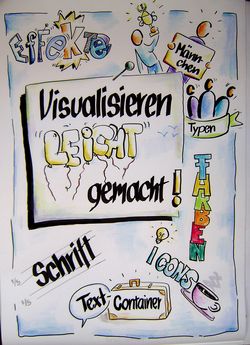 Effekte
Männ-
chen
Visualisieren
LEICHT
gemacht!
Typen
FARBEN
Schrift
ICONS
Text
Container